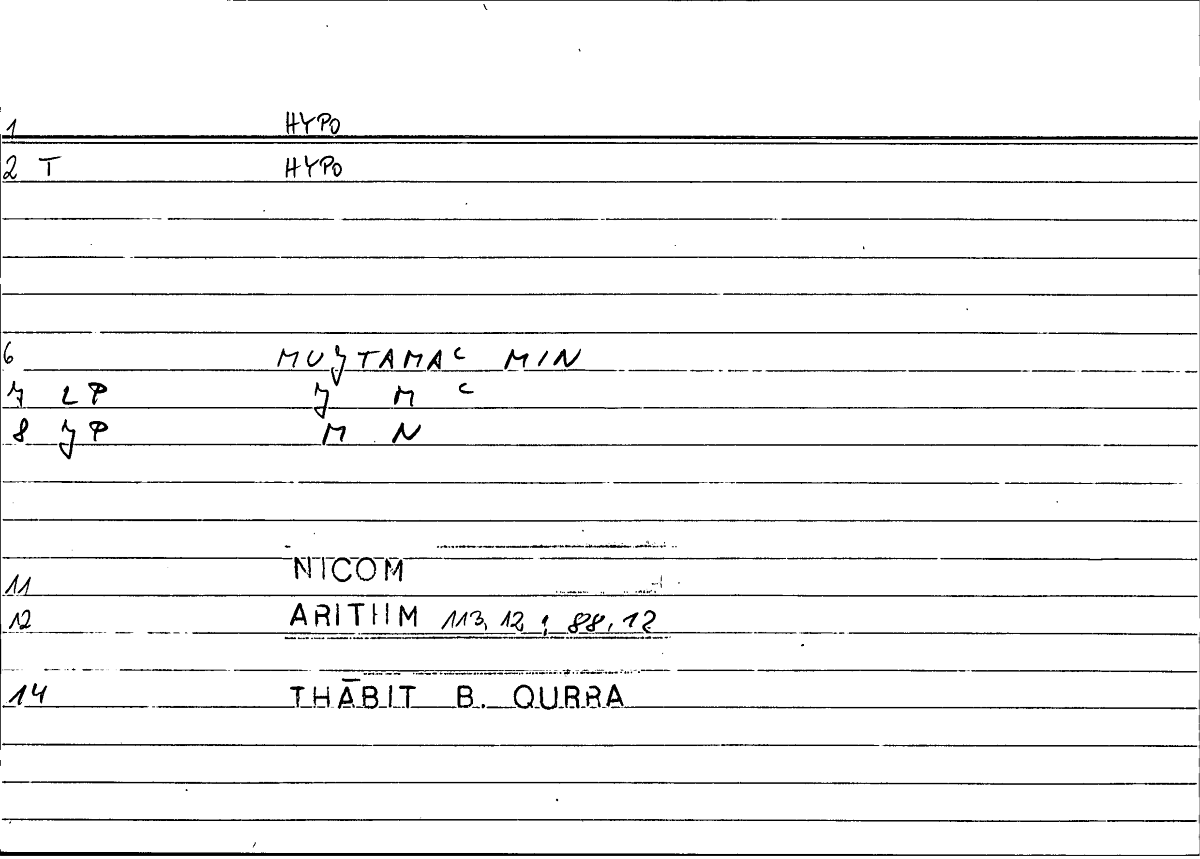 1 HYPO
2 T HYPO
6 MUŷTAMAᶜ MIN
7 LP ŷ M ᶜ
8 ŷP M N
11 NICOM
12 ARITHM 113,12 ; 88,12
14 THĀBIT B. QURRA